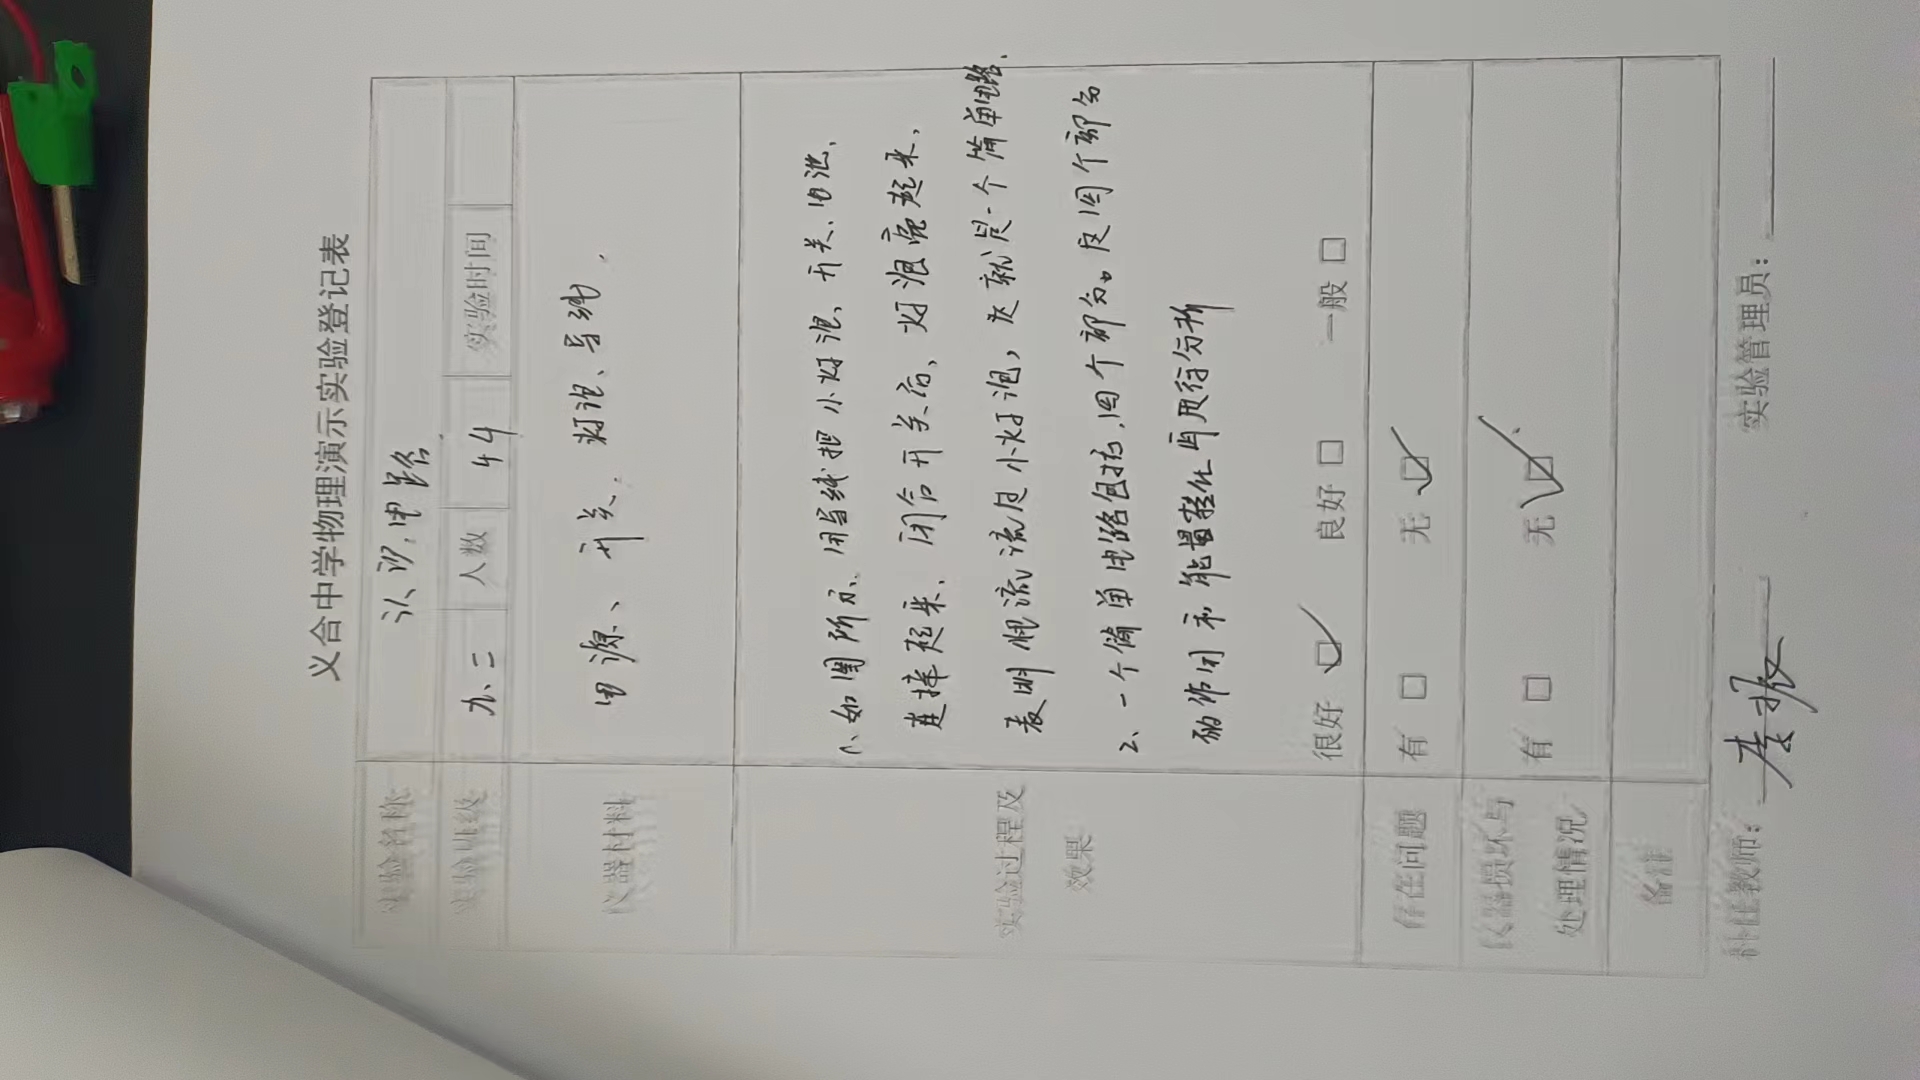 义合中学物理演示实验登记表
实验名称 认识电路
实验班级 九.二 人数 44 实验时间
仪器材料 电源、开关、灯泡、导线.
实验过程及效果
1、如图所示、用导线把小灯泡、开关、电池、
连接起来、闭合开关后、灯泡亮起来,
表明 流流过小灯泡,这就是一个简单电路.
2、一个简单电路包括,四个部分。 四个部分
的作用和能量转化再进行分析
很好 ☑ 良好 □ 一般 □
存在问题 有 □ 无 ☑
仪器损坏与处理情况 有 □ 无 ☑
备注
科任教师: 李振 实验管理员: